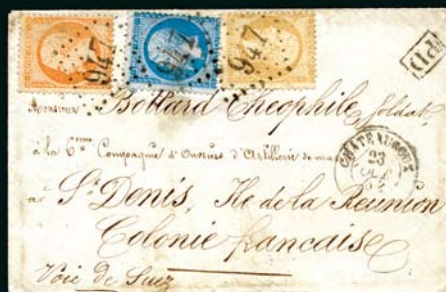 947 947 947
PD
Monsieur Bollard Theophile Soldat
à la 6eme Compagnie d'Ouvriers d'Artillerie de
CHATEAUROUX
23
à St Denis, Ile de la Reunion
Colonie francaise
Voie de Suez